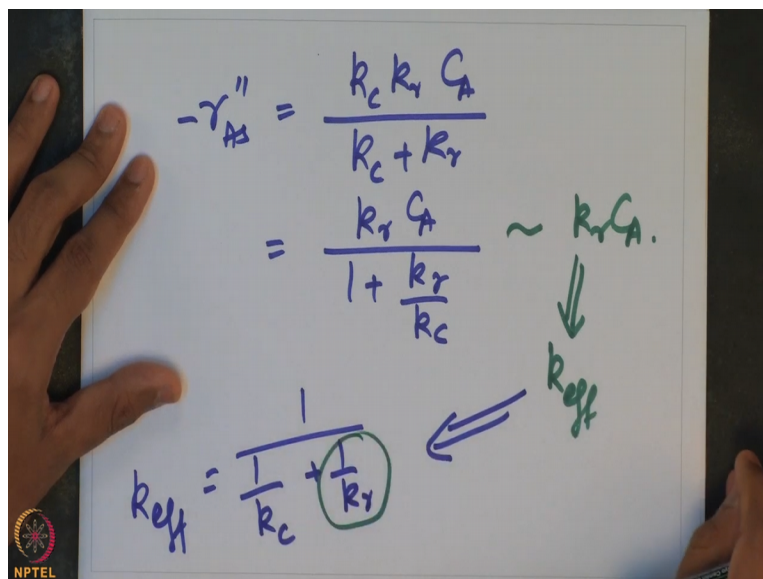 -r''_As = k_c k_r C_A / (k_c + k_r)
= k_r C_A / (1 + k_r/k_c) ~ k_r C_A.
k_eff
k_eff = 1 / (1/k_c + 1/k_r)
NPTEL